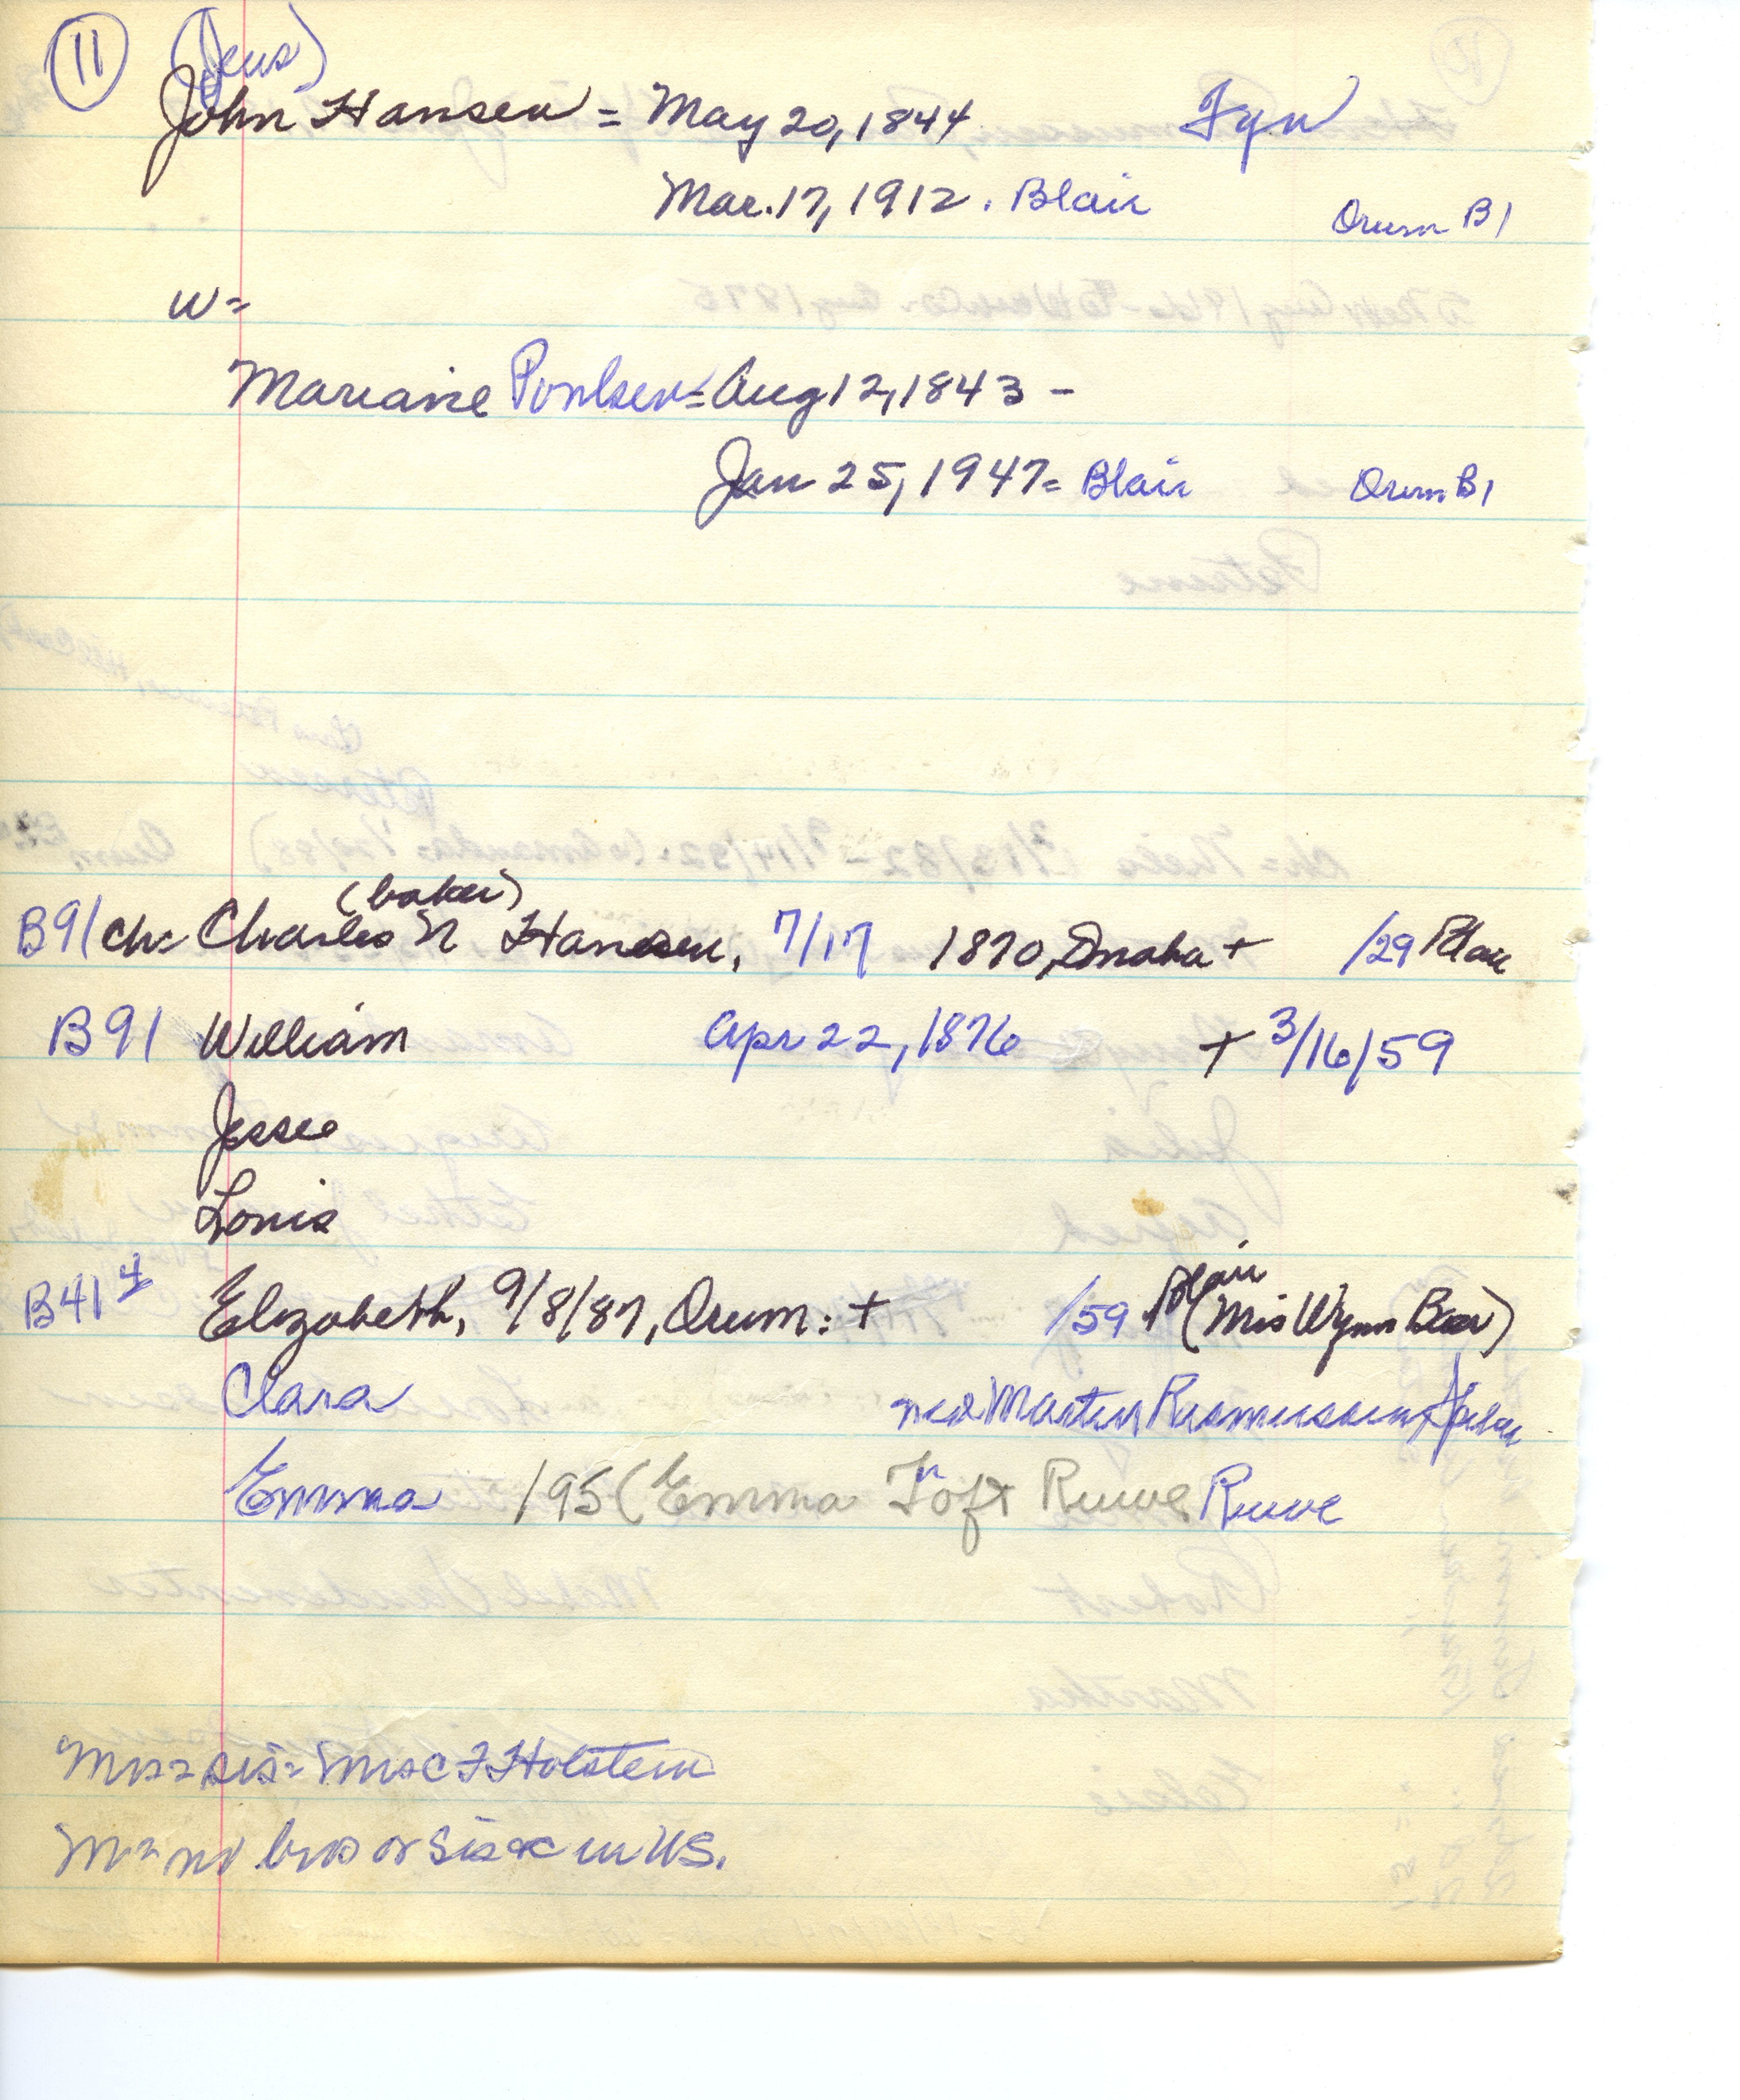 11 (Jens)
John Hansen = May 20, 1844 Fyn
Mar. 17, 1912. Blair Orum B1
w=
Mariane Poulsen = Aug 12, 1843 -
Jan 25, 1947 = Blair Orum B1
(baker)
B91 ch= Charles N Hansen, 7/17 1870, Omaha + /29 Blair
B91 William Apr 22, 1876 + 3/16/59
Jessee
Louis
B41 4 Elizabeth, 9/8/87, Orum: + /59 Blair (Mrs Wynn Beer)
Clara Martin Rasmussen
Emma 195 (Emma Toft Ruwe Ruwe
Mrs = sis = Mrs C F Holstein
M = no bros or sis in US.